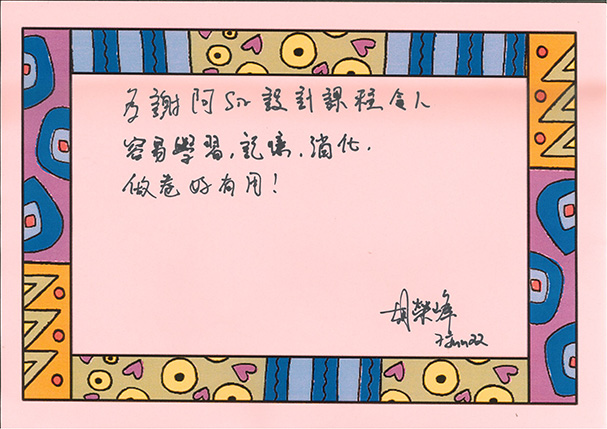 多謝阿Sir設計課程令人
容易學習，記憶，消化，
做卷好有用！
胡榮峰